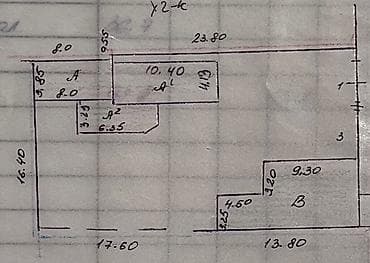 8.0
9.55
23.80
3.85
A
8.0
10.40
A¹
4.19
1
3.29
A²
6.35
3
16.40
9.30
3.20
4.60
B
3.25
17.60
13.80